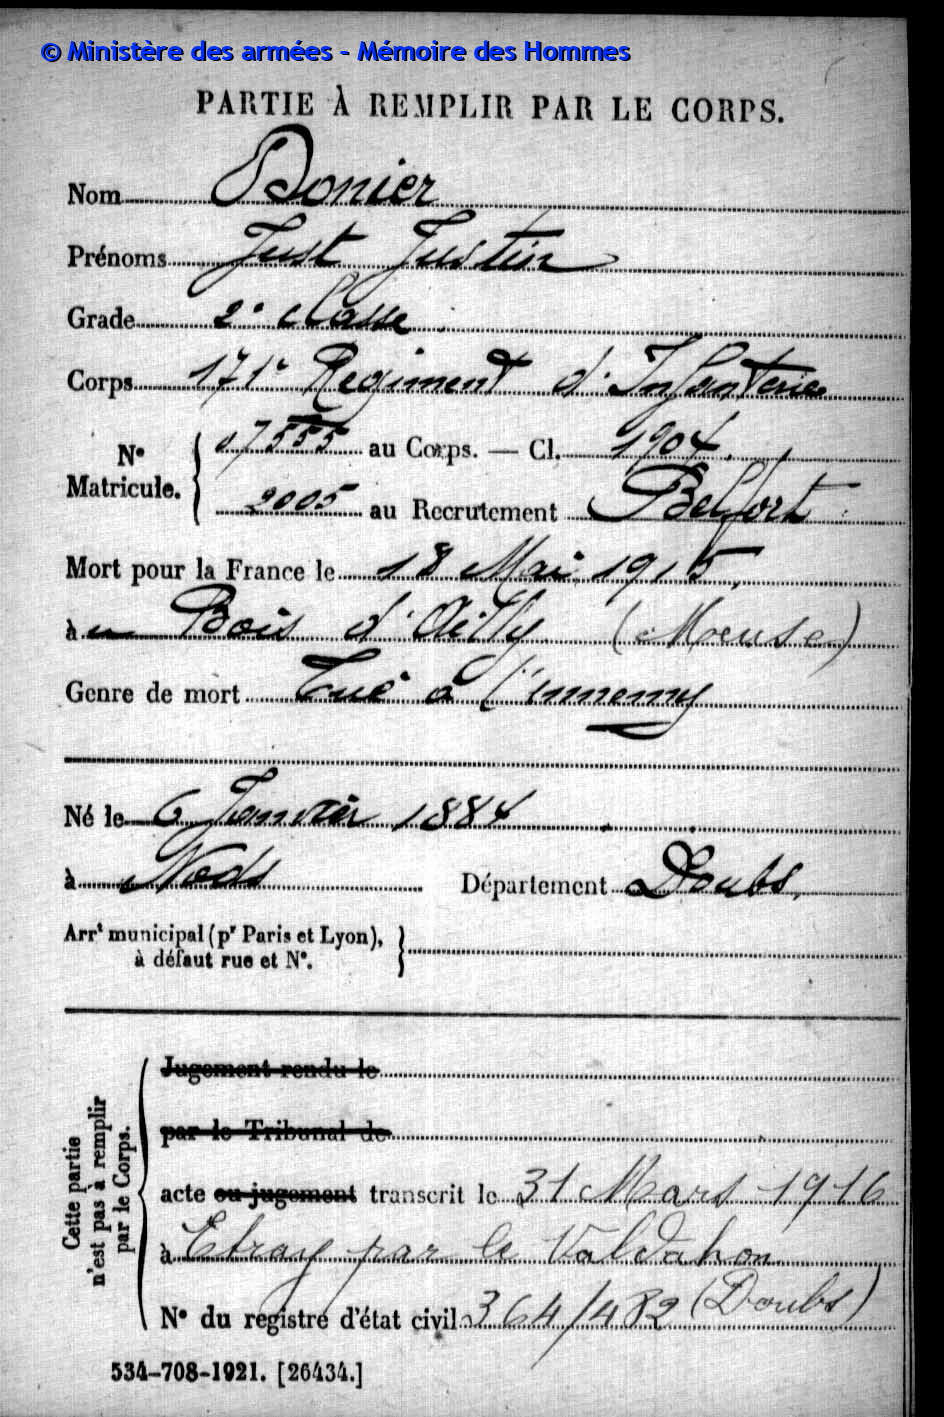 © Ministère des armées - Mémoire des Hommes
PARTIE À REMPLIR PAR LE CORPS.
Nom Bonier
Prénoms Just Justin
Grade 2e classe
Corps 171e Régiment d'Infanterie
No Matricule. { 07555 au Corps. — Cl. 1904.
2005 au Recrutement Belfort
Mort pour la France le 18 Mai 1915,
à au Bois d'Ailly (Meuse)
Genre de mort Tué à l'ennemy
Né le 6 Janvier 1884
à Nods Département Doubs,
Arrt municipal (pr Paris et Lyon), à défaut rue et No. }
Cette partie n'est pas à remplir par le Corps. {
Jugement rendu le
par le Tribunal de
acte ou jugement transcrit le 31 Mars 1916
à Etray par le Valdahon
No du registre d'état civil 364/482 (Doubs)
534-708-1921. [26434.]